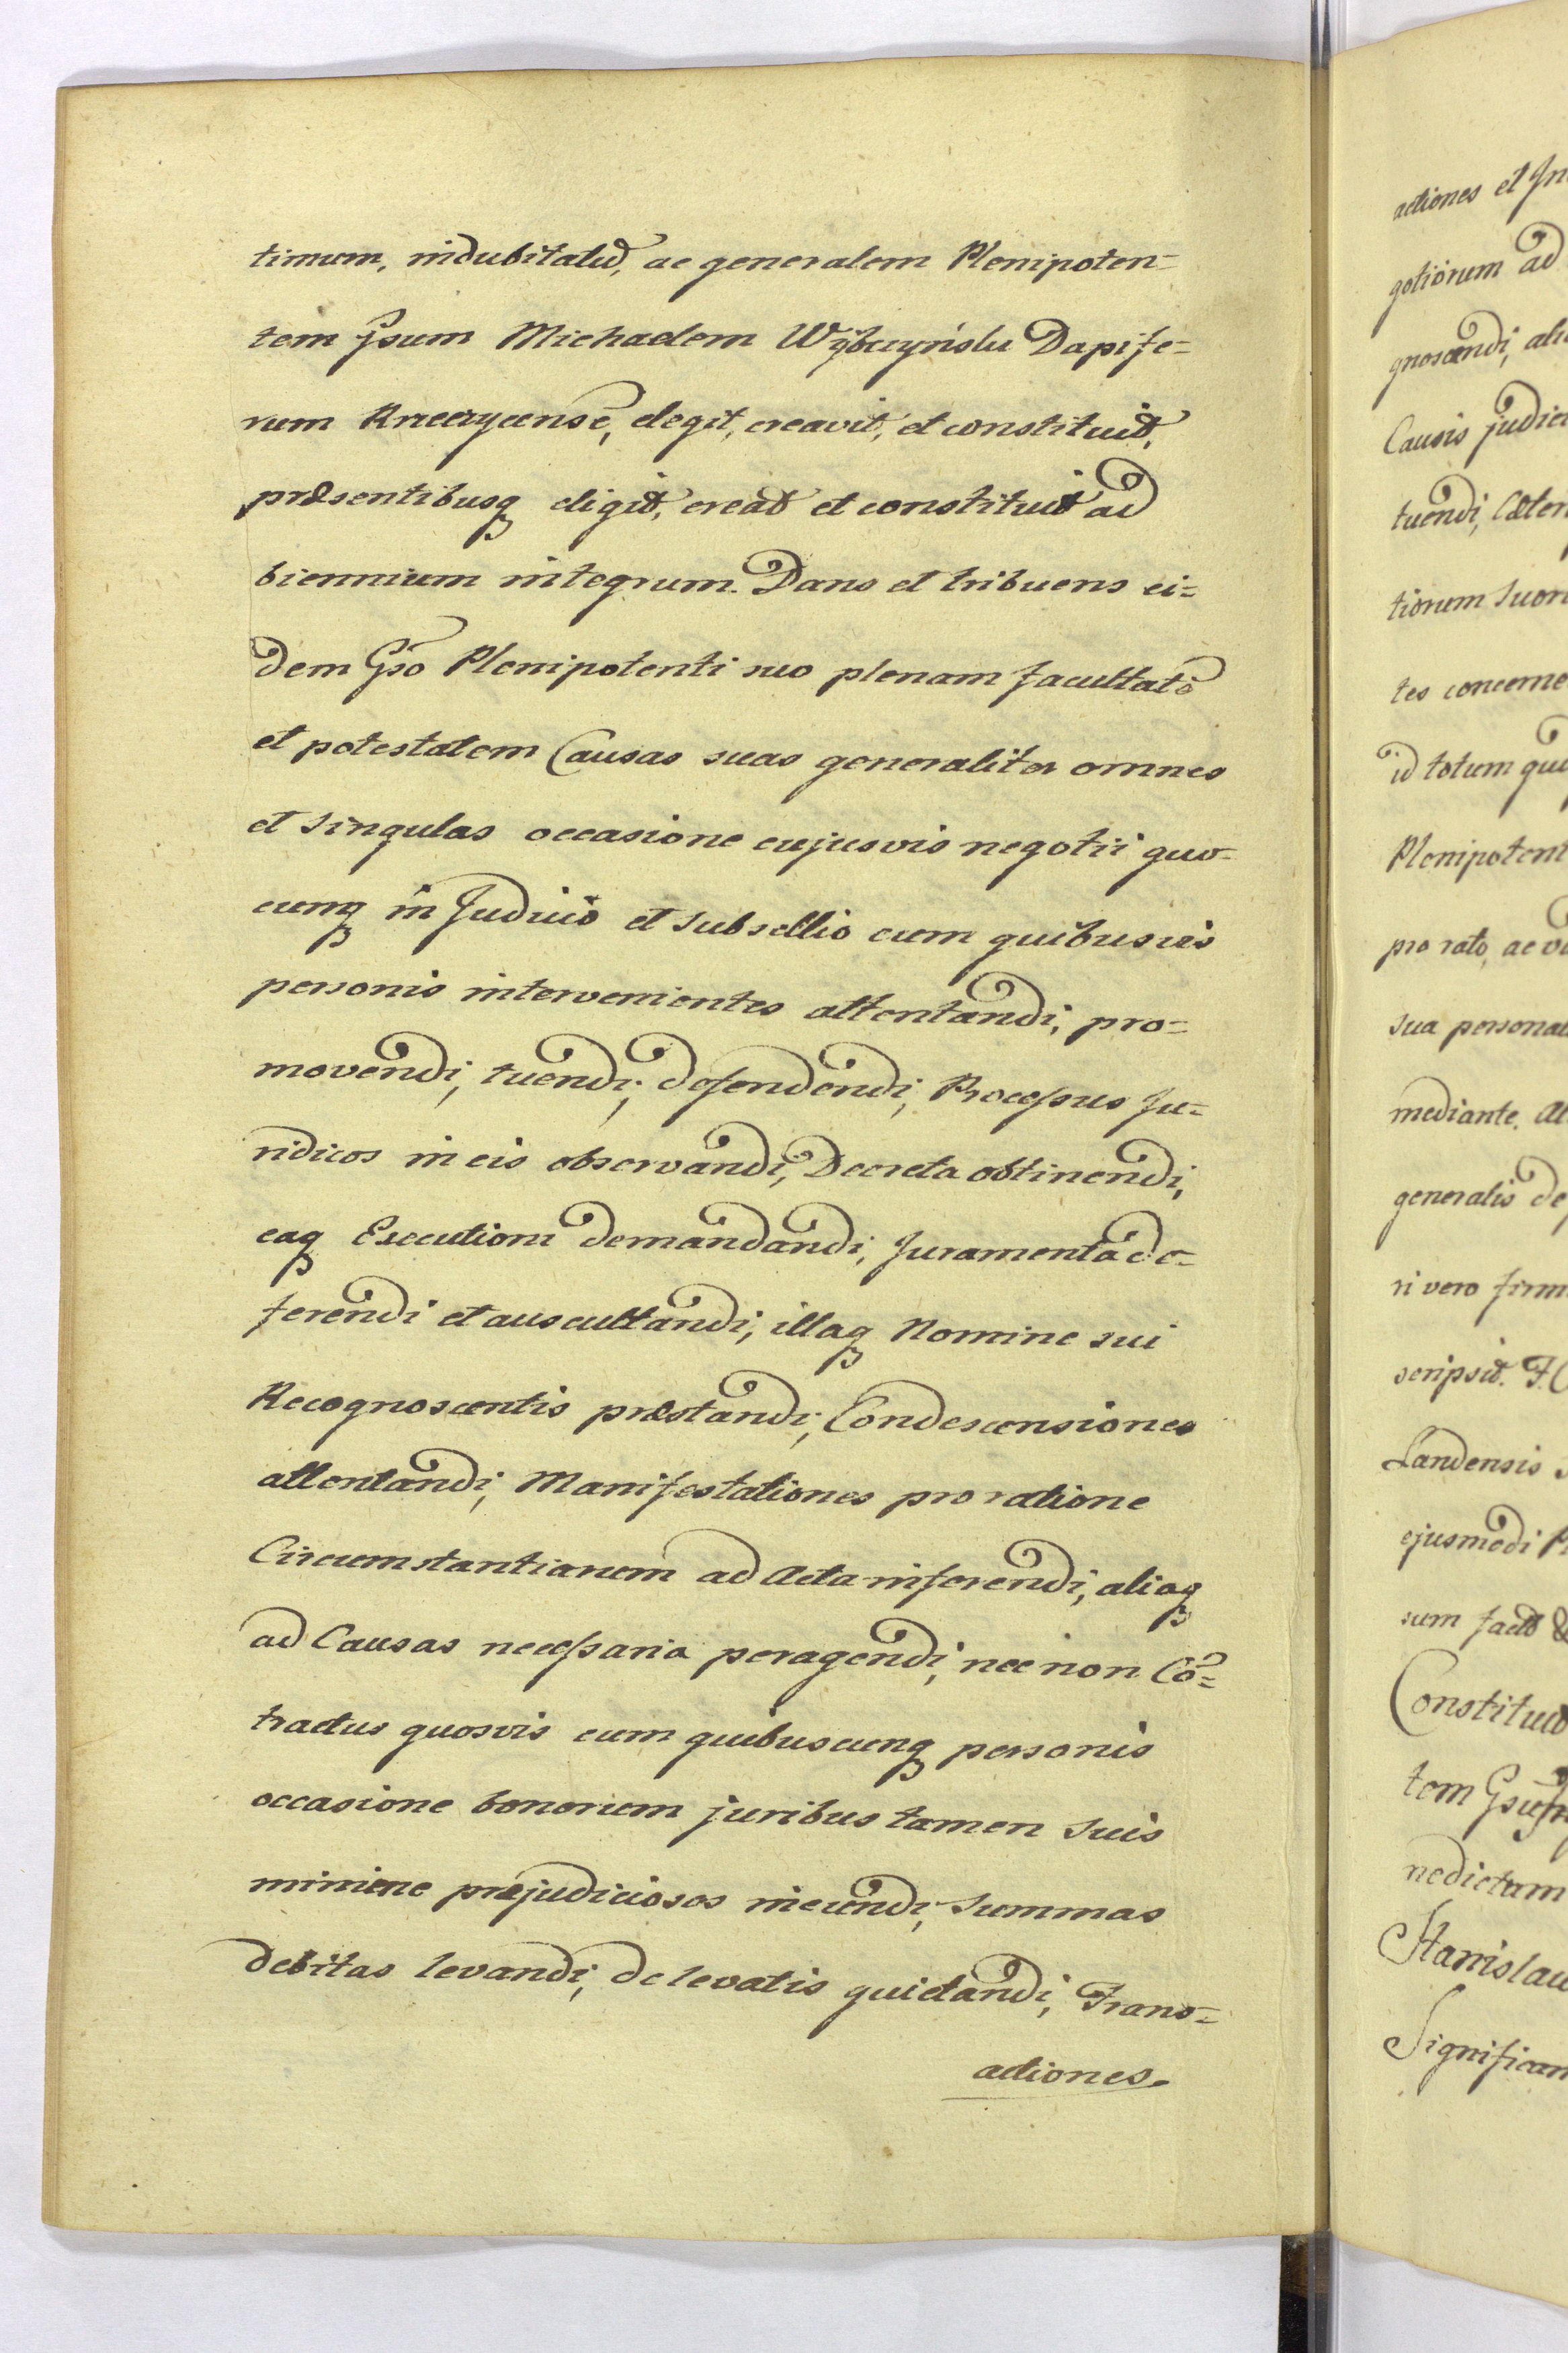 timum, indubitatū, ac generalem Plenipoten=
tem Gsum Michaelem Wybczyńsku Dapife=
rum Kneczycensē, elegit, creavit, et constituit,
præsentibusq eligit, creat et constituit ad
biennium integrum. Dans et tribuens ei=
dem Gso Plenipotenti suo plenam facultatē
et potestatem Causas suas generaliter omnes
et singulas occasione cujusvis negotii quo-
cunq in Judicio et subsellio cum quibusvis
personis intervenientes attentandi, pro=
movendi, tuendi, defendendi, Processus Ju=
ridicos in eis observandi, Decreta obtinendi,
eaq Executioni demandandi, Juramenta de=
ferendi et auscultandi, illaq Nomine sui
Recognoscentis præstandi, Condescensiones
attentandi, Manifestationes pro ratione
Circumstantiarum ad Acta inferendi, aliaq
ad Causas necessaria peragendi, nec non Cō=
tractus quosvis cum quibuscunq personis
occasione bonorum juribus tamen suis
minime præjudiciosos ineundi, summas
debitas levandi, de levatis quietandi, Trans=
actiones
actiones et
gotiorum ad
gnoscendi,
Causis
tuendi,
tiorum
tes
id totum
pro rato, ac
sua
mediante.
generalis
ri vero
scripsit.
Landensis
ejusmodi
sum
Constituit
tem